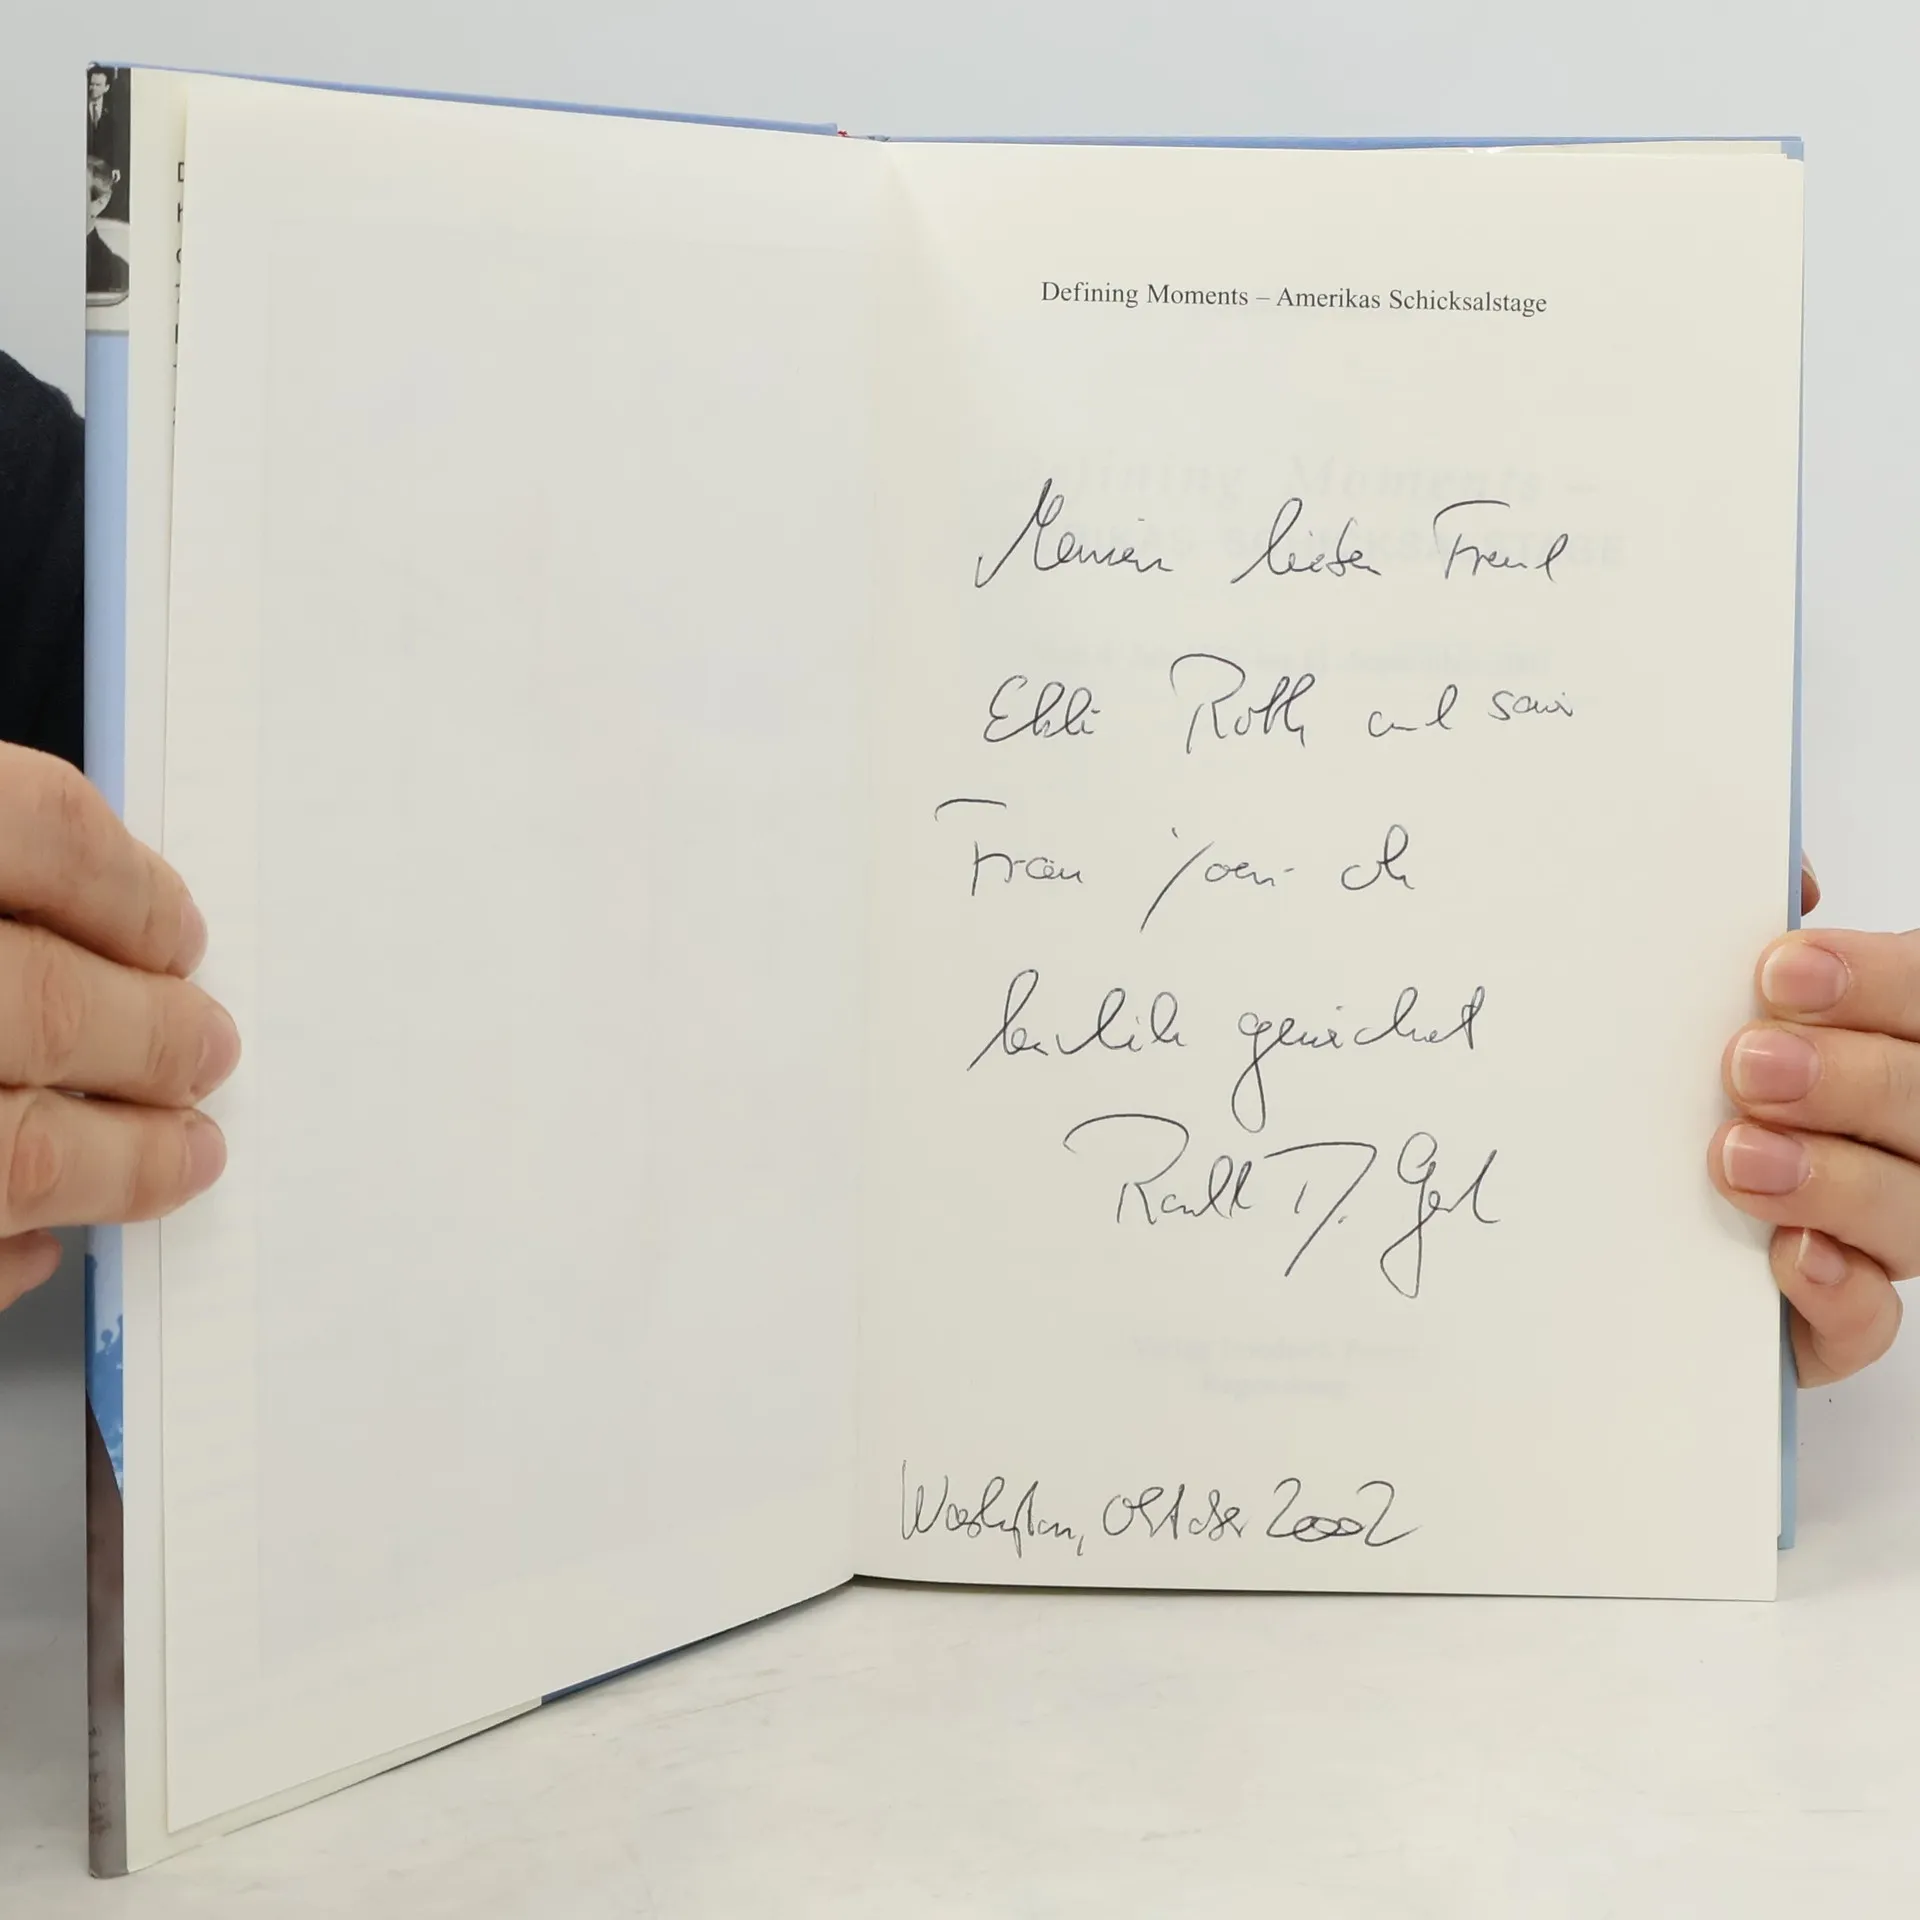 Defining Moments – Amerikas Schicksalstage
Meinem lieben Freund
Ekki Roth und seiner
Frau
herzlich gewidmet
Ronald D. Gerste
Washington, Oktober 2002